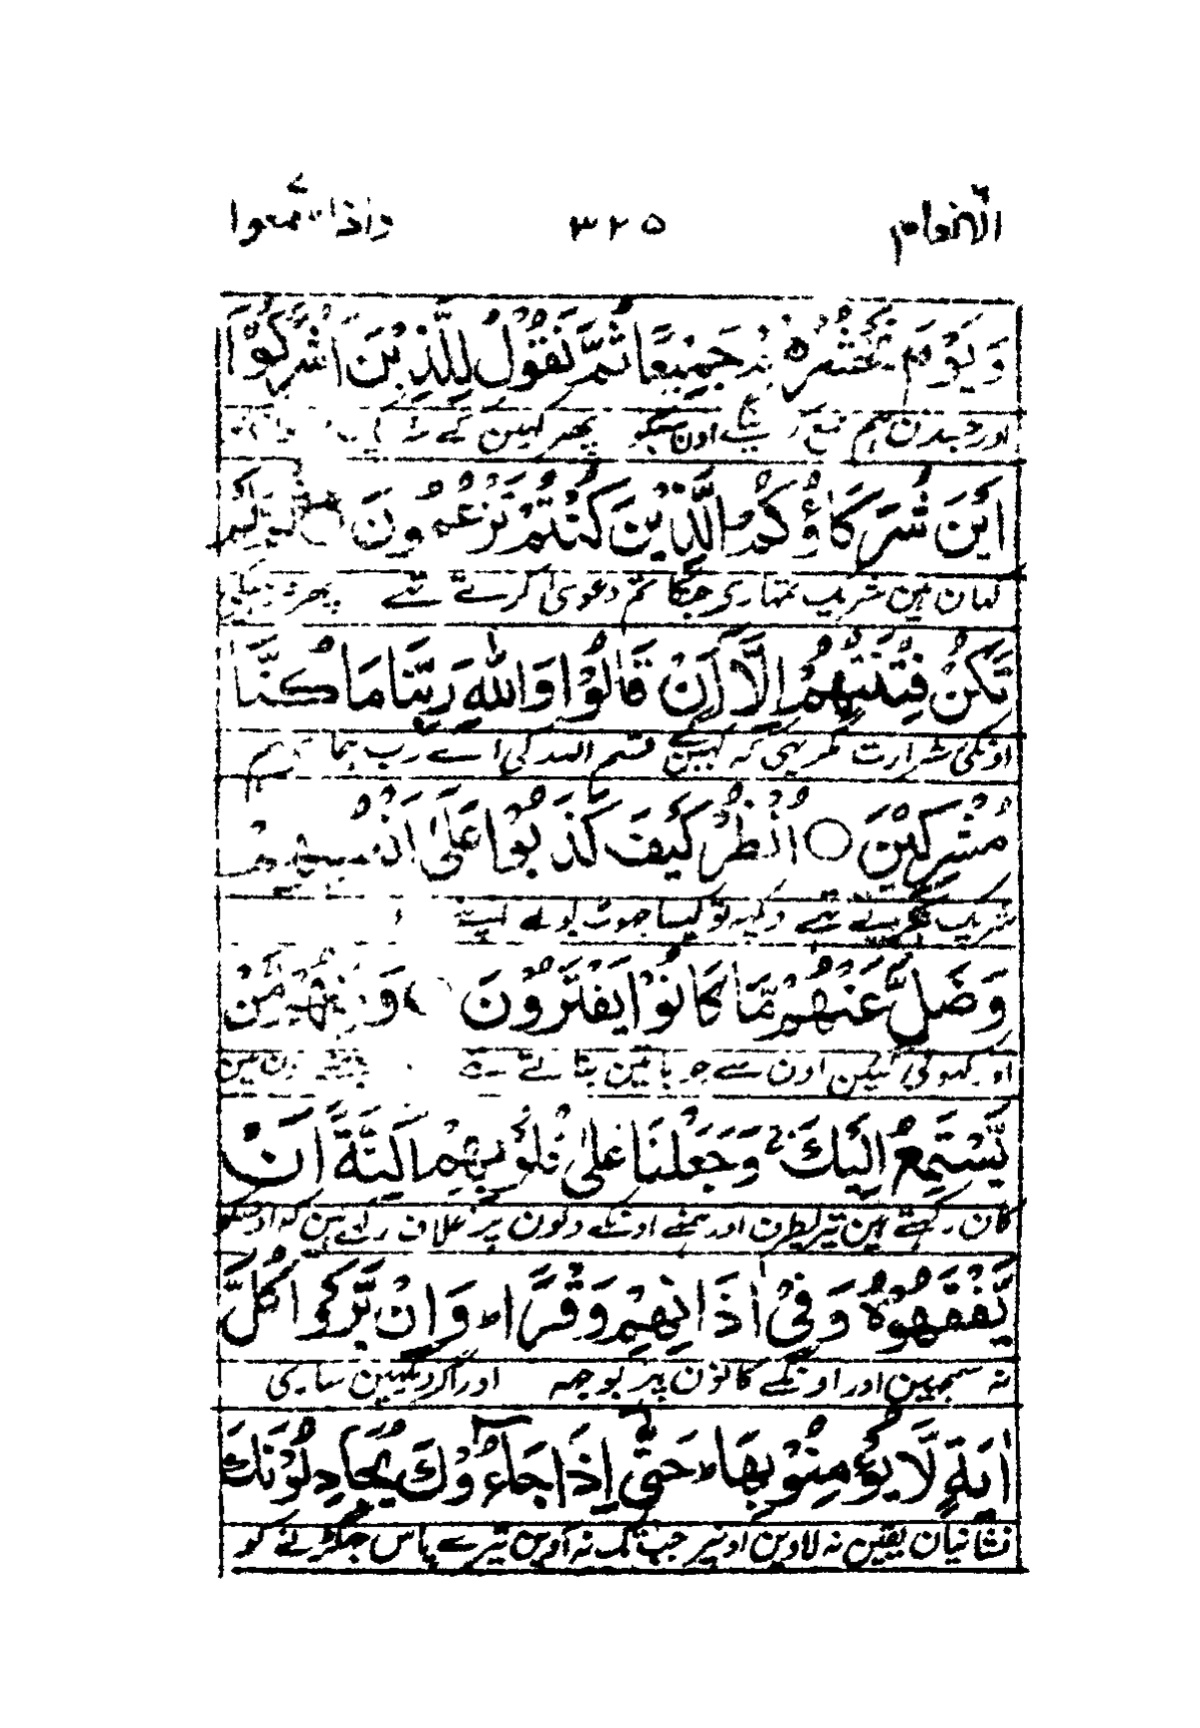 الانعام ٦ ٣٢٥ واذا سمعوا ٧
وَيَوْمَ نَحْشُرُهُمْ جَمِيْعًا ثُمَّ نَقُوْلُ لِلَّذِيْنَ اَشْرَكُوْٓا
اور جسدن ہم جمع اون سبکو پھر کہین گے
اَيْنَ شُرَكَاؤُكُمُ الَّذِيْنَ كُنْتُمْ تَزْعُمُوْنَ ○ ثُمَّ لَمْ
کہان ہین شریک تمہاری جنکا تم دعوی کرتے تھے پھر نہ رہیگی
تَكُنْ فِتْنَتُهُمْ اِلَّآ اَنْ قَالُوْا وَاللّٰهِ رَبِّنَا مَا كُنَّا
اونکی شرارت مگر یہی کہ کہین گے قسم اللہ کی اے رب ہم
مُشْرِكِيْنَ ○ اُنْظُرْ كَيْفَ كَذَبُوْا عَلٰٓى اَنْفُسِهِمْ
شریک نکرتے تھے دیکہہ تو کیسا جھوٹ بولے اپنے
وَضَلَّ عَنْهُمْ مَّا كَانُوْا يَفْتَرُوْنَ ○ وَمِنْهُمْ مَّنْ
اور کہوئی گئین اون سے جو باتین بناتے تھے بعضے اون مین
يَّسْتَمِعُ اِلَيْكَ ۚ وَجَعَلْنَا عَلٰى قُلُوْبِهِمْ اَكِنَّةً اَنْ
کان رکھتے ہین تیریطرف اور ہمنے اونکے دلون پر غلاف رکھے ہین کہ اوسکو
يَّفْقَهُوْهُ وَفِيْٓ اٰذَانِهِمْ وَقْرًا ؕ وَاِنْ يَّرَوْا كُلَّ
نہ سمجہین اور اونکے کانون پر بوجہہ اور اگر دیکہین ساری
اٰيَةٍ لَّا يُؤْمِنُوْا بِهَا ؕ حَتّٰٓى اِذَا جَآءُوْكَ يُجَادِلُوْنَكَ
نشانیان یقین نہ لاوین اونپر جب تک نہ آوین تیرے پاس جھگڑنے کو